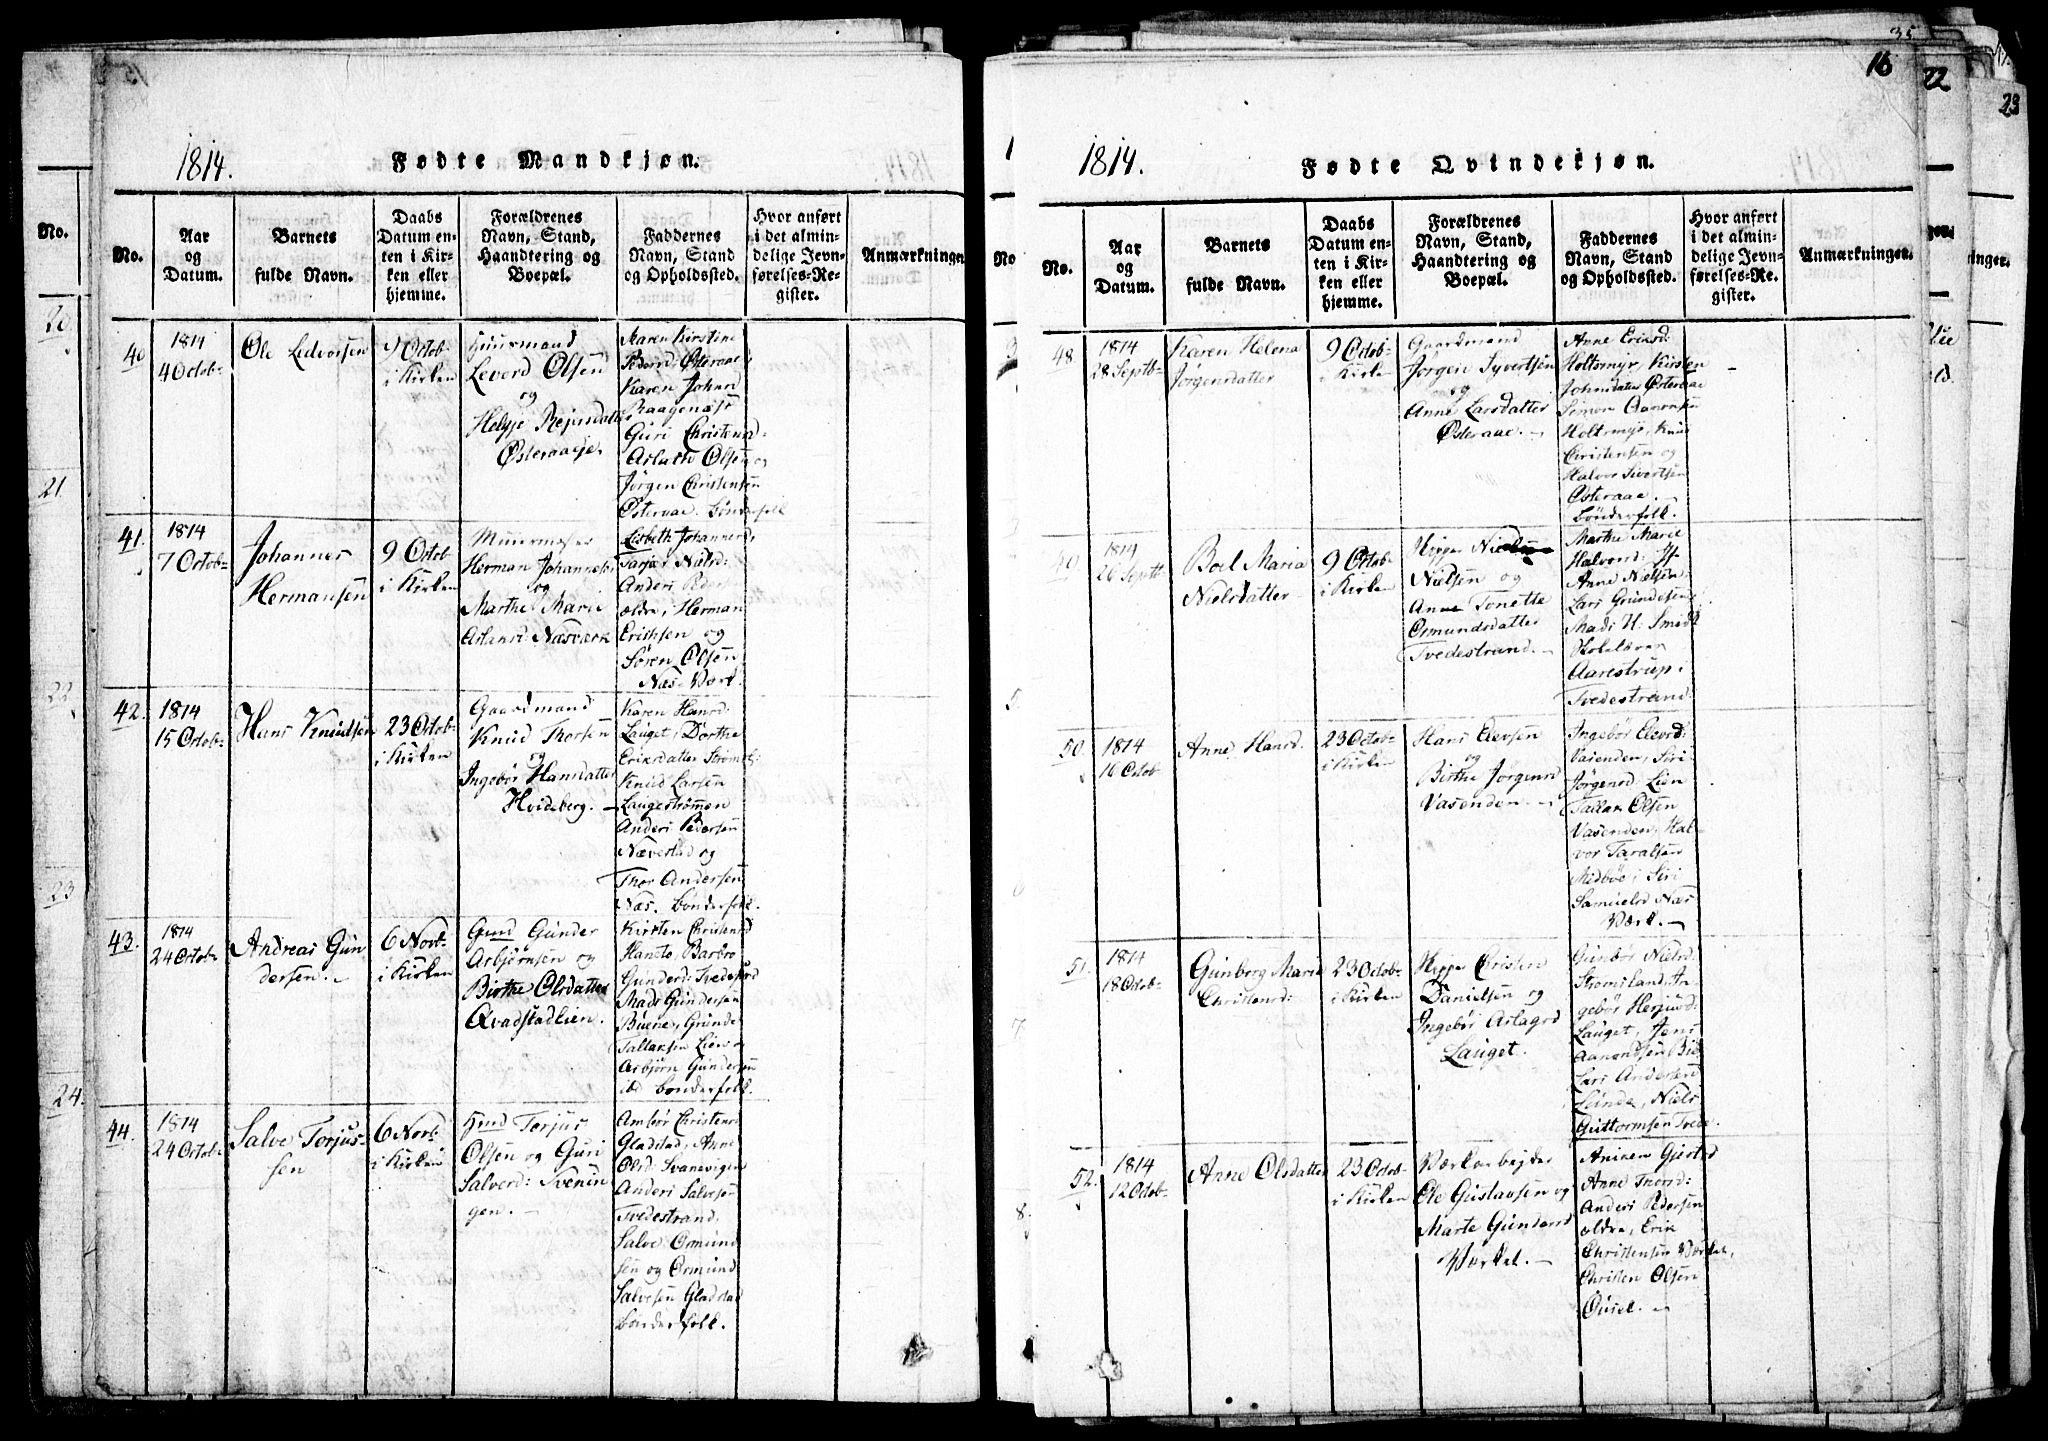 1814.
Fødte Mandkjøn.
No.
Aar
og
Datum.
Barnets
fulde Navn.
Daabs
Datum en-
ten i Kir-
ken eller
hjemme.
Forældrenes
Navn, Stand,
Haandtering og
Boepæl.
Faddernes
Navn, Stand
og Opholdssted.
Hvor anført
i det almin-
delige Jevn-
førelses-Re-
gister.
Anmærkninger
40
1814
4 Octob-
Ole Ledvorsen
9 Octob-
i Kirken
Huusmand
Leverd Olsen
og
Helgje
Østeraaje
Karen Kirstine
Pedersd: Østeraae
Karen Johansd
Guri Christensd:
Aslath Olsen og
Jørgen Christensen
Østeraae. Bønderfolk
41.
1814
7 Octob-
Johannes
Hermansen
9 Octob-
i Kirken
Muurmester
Herman Johannesen
og
Marthe Marie
Aslansd Næsværk
Lisbeth Johannesd:
Tarjæ Nielsd:
Anders Peders
ældre, Herman
Erichsen og
Søren Olsen
Næs-Værk.
42.
1814
15 Octob-
Hans Knudsen
23 Octob-
i Kirken
Gaardmand
Knud Thorsen
og
Ingebor Hansdatter
Hvideberg. -
Karen Hansd:
Lauget, Dorthe
Eriksdatter
Knud Larsen
Laugestrømmen
Anders Pedersen
Næverstad og
Thor Andersen
Næs. Bønderfolk.
43.
1814
24 Octob-
Andreas Gun
dersen. -
6 Novb-
i Kirken
Gmd Gunder
Asbjørnsen og
Birthe Olsdatter
Qvadstadlien.
Kirsten Christensd
Hansto, Barbro
Gundersd: Tvedestrd
Mads Gundersen
Buene, Gunde
Tallaksen Lien og
Asbjørn Gundersen
ibd Bønderfolk.
44.
1814
24 Octob-
Salve Torjus-
sen
6 Novb-
i Kirken
Hmd Torjus
Olsen og Guri
Salvesd: Svenin
gen. -
Ambør Christensd
Gladstad, Anne
Olsd: Svanevigen
Anders Salvesen
Tvedestrand,
Salve Osmund
sen og Osmund
Salvesen Gladstad
Bønderfolk.
16
1814.
Fødte Qvindekjøn.
No.
Aar
og
Datum.
Barnets
fulde Navn.
Daabs
Datum en-
ten i Kir-
ken eller
hjemme.
Forældrenes
Navn, Stand,
Haandtering og
Boepæl.
Faddernes
Navn, Stand
og Opholdssted.
Hvor anført
i det almin-
delige Jevn-
førelses-Re-
gister.
Anmærkninger.
48.
1814
28 Septb-
Karen Helena
Jørgensdatter
9 Octob-
i Kirken
Gaardmand
Jørgen Syvertsen
og
Anne Larsdatter
Østeraae. -
Anne Eriksd:
Holtsmyr, Kirsten
Johnsdatter Østeraae
Simon Aanonsen
Holtsmyr, Knud
Christensen og
Halvor Sivertsen
Østeraae. -
Bønderfolk.
1814
26 Septb
Boel Maria
Nielsdatter
9 Octob-
i Kirken
Niels
Nielsen og
Anne Tonette
Osmundsdatter
Tvedestrand. -
Marthe Marie
Halvorsd:
Anne Nielsen,
Lars Gundesen,
Mads H: Smidt
Aarestrup.
Tvedestrand
50.
1814
16 Octob
Anne Hansd.
23 Octob-
i Kirken
Hans Elevsen
og
Birthe Jørgensd
Vasenden. -
Ingebør Elevsd:
Vasenden, Siri
Jørgensd Lien
Tallak Olsen
Vasenden, Hal-
vor Taralsen
Midboe, Siri
Samuelsd Næs
Værk. -
51.
1814
18 Octob-
Gunborg Marie
Christensd:
23 Octob-
i Kirken
Christen
Danielsen og
Ingebør Aslagsd
Lauget.
Gunbør Nielsd
Stromsland, In-
gebør Herjusd:
Lauget, Jens
Aanondsen Bie,
Lars Andersen
Lunde, Niels
Guttormsen Tvede.
52.
1814
12 Octob-
Anne Olsdatter
23 Octob-
i Kirken
Værksarbejder
Ole Gustavsen og
Marte Gundersd
Værket. -
Aniken Gjertsd
Anne Thorsd:
Anders Pedersen
ældre, Erik
Christensen Værket,
Christen Olsen